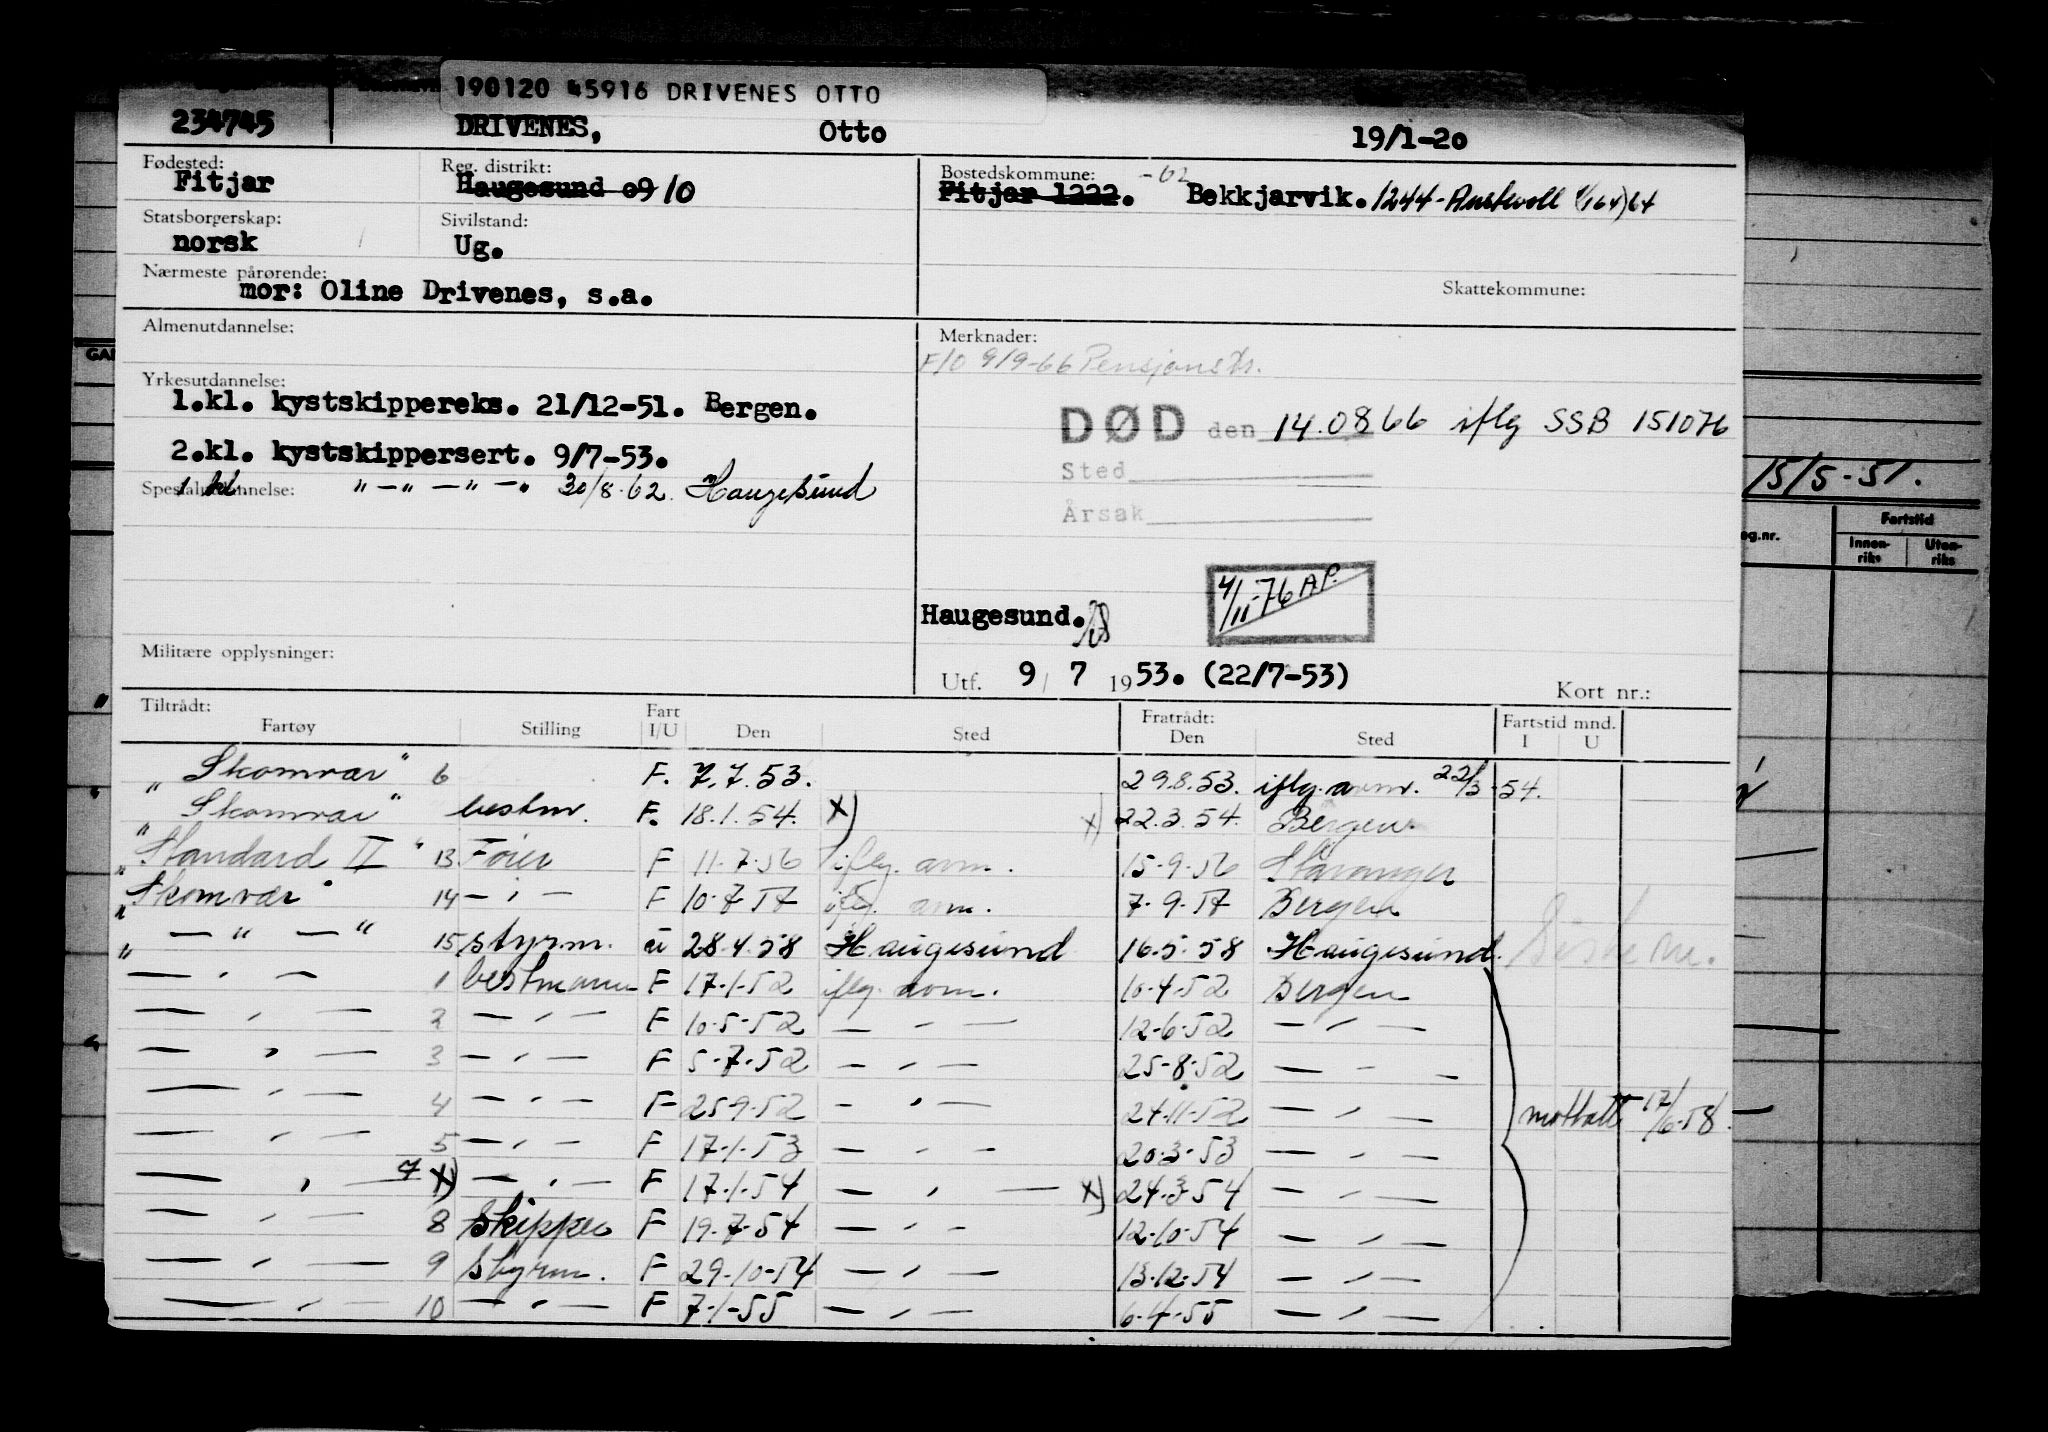 190120 45916 DRIVENES OTTO
234745 DRIVENES, Otto 19/1-20
Fødested: Reg. distrikt: Bostedskommune: -62
Fitjar Haugesund 09 10 Fitjar 1222. Bekkjarvik. 1244-Austevoll (1/1 64) 64
Statsborgerskap: Sivilstand:
norsk Ug.
Nærmeste pårørende: Skattekommune:
mor: Oline Drivenes, s.a.
Almenutdannelse: Merknader:
F/O 9/9-66 Pensjonstr.
Yrkesutdannelse:
1.kl. kystskippereks. 21/12-51. Bergen.
DØD den 14.0866 iflg SSB 151076
2.kl. kystskippersert. 9/7-53.
Sted
Spesialutdannelse: 1 kl " — " — " — " 30/8-62. Haugesund
Årsak
15/5-51.
Fartstid
Innen-riks Uten-riks
4/11-76 AP.
Haugesund.
Militære opplysninger:
Utf. 9/ 7 1953. (22/7-53)
Kort nr.:
Tiltrådt: Fart Fratrådt: Fartstid mnd.
Fartøy Stilling I/U Den Sted Den Sted I U
"Skomvær" 6 F. 7.7.53. 29.8.53. iflg. avm. 22/3-54.
"Skomvær" bestm. F. 18.1.54. x) x) 22.3.54. Bergen.
"Standard II" 13 Fører F 11-7-56 iflg. avm. 15-9-56 Stavanger
"Skomvær" 14 — " — F 10-7-57 iflg. avm. 7-9-57 Bergen
" — " — " 15 styrm. u 28.4.58 Haugesund 16.5.58 Haugesund.
— " — 1 bestmann F 17-1-52 iflg. avm. 10-4-52 Bergen
— " — 2 — " — F 10-5-52 — " — 12-6-52 — " —
— " — 3 — " — F 5-7-52 — " — 25-8-52 — " —
— " — 4 — " — F 25-9-52 — " — 24-11-52 — " — mottatt 17/6-58.
— " — 5 — " — F 17-1-53 — " — 20-3-53 — " —
— " — 7 x) — " — F 17-1-54 — " — x) 24-3-54 — " —
— " — 8 Skipper F 19-7-54 — " — 12-10-54 — " —
— " — 9 Styrm. F 29-10-54 — " — 13-12-54 — " —
— " — 10 — " — F 7-1-55 — " — 6-4-55 — " —